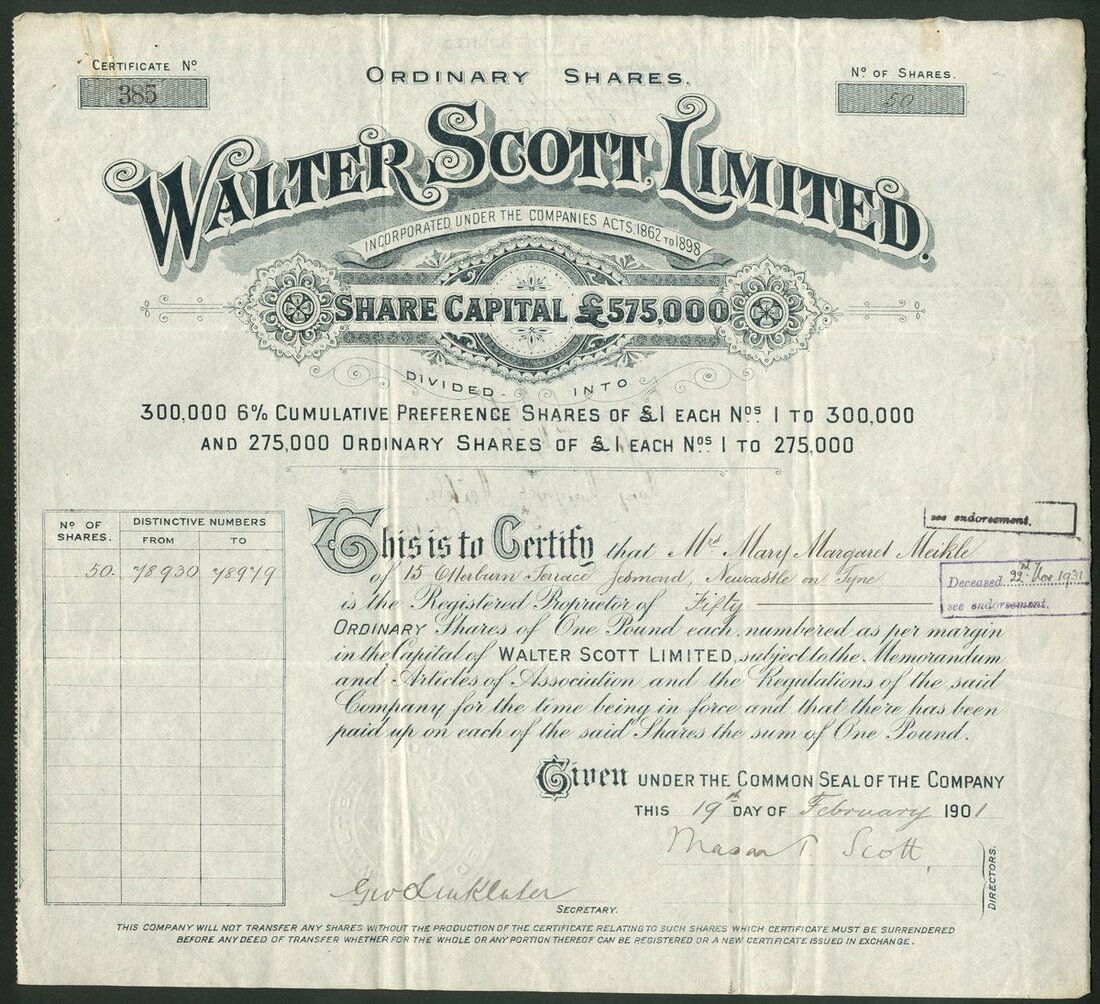 CERTIFICATE Nº
385
ORDINARY SHARES.
Nº OF SHARES.
50
WALTER SCOTT, LIMITED.
INCORPORATED UNDER THE COMPANIES ACTS, 1862 TO 1898
SHARE CAPITAL £575,000
DIVIDED INTO
300,000 6% CUMULATIVE PREFERENCE SHARES OF £1 EACH Nos. 1 TO 300,000
AND 275,000 ORDINARY SHARES OF £1 EACH Nos. 1 TO 275,000
Nº OF SHARES.
DISTINCTIVE NUMBERS
FROM TO
50. 78930 78979
see endorsement.
This is to Certify that Mrs Mary Margaret Meikle
of 15 Otterburn Terrace Jesmond, Newcastle on Tyne
Deceased 22nd Nov 1931
see endorsement.
is the Registered Proprietor of Fifty
ORDINARY Shares of One Pound each, numbered as per margin
in the Capital of WALTER SCOTT LIMITED, subject to the Memorandum
and Articles of Association and the Regulations of the said
Company for the time being in force and that there has been
paid up on each of the said Shares the sum of One Pound.
Given UNDER THE COMMON SEAL OF THE COMPANY
THIS 19th DAY OF February 1901
Mason T. Scott
DIRECTORS.
Geo Linklater
SECRETARY.
THIS COMPANY WILL NOT TRANSFER ANY SHARES WITHOUT THE PRODUCTION OF THE CERTIFICATE RELATING TO SUCH SHARES WHICH CERTIFICATE MUST BE SURRENDERED
BEFORE ANY DEED OF TRANSFER WHETHER FOR THE WHOLE OR ANY PORTION THEREOF CAN BE REGISTERED OR A NEW CERTIFICATE ISSUED IN EXCHANGE.